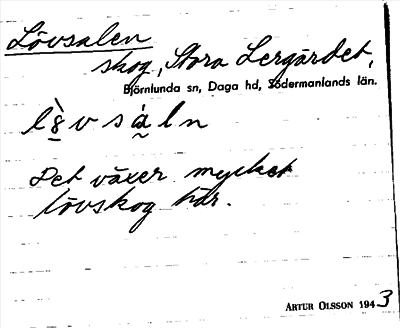 Lövsalen
skog, Stora Lergärdet,
Björnlunda sn, Daga hd, Södermanlands län.
l8̀vsáln
Det växer mycket
lövskog här.
ARTUR OLSSON 1943